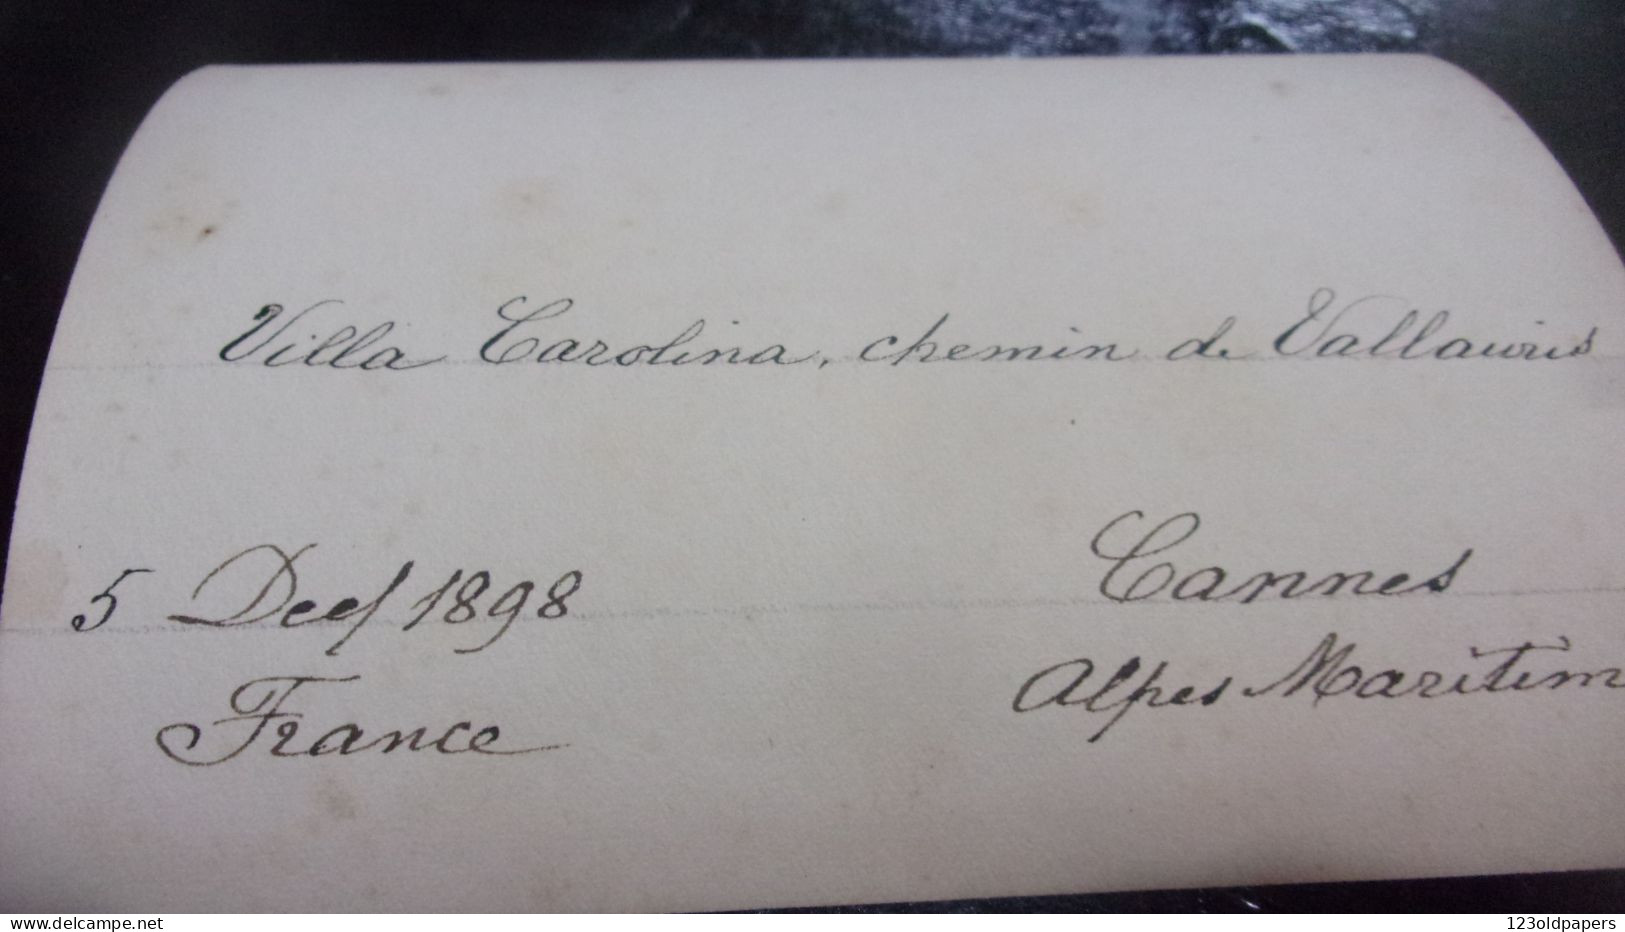 Villa Carolina, chemin de Vallauris
5 Dec/ 1898
Cannes
France
Alpes Maritim
www.delcampe.net
123oldpapers